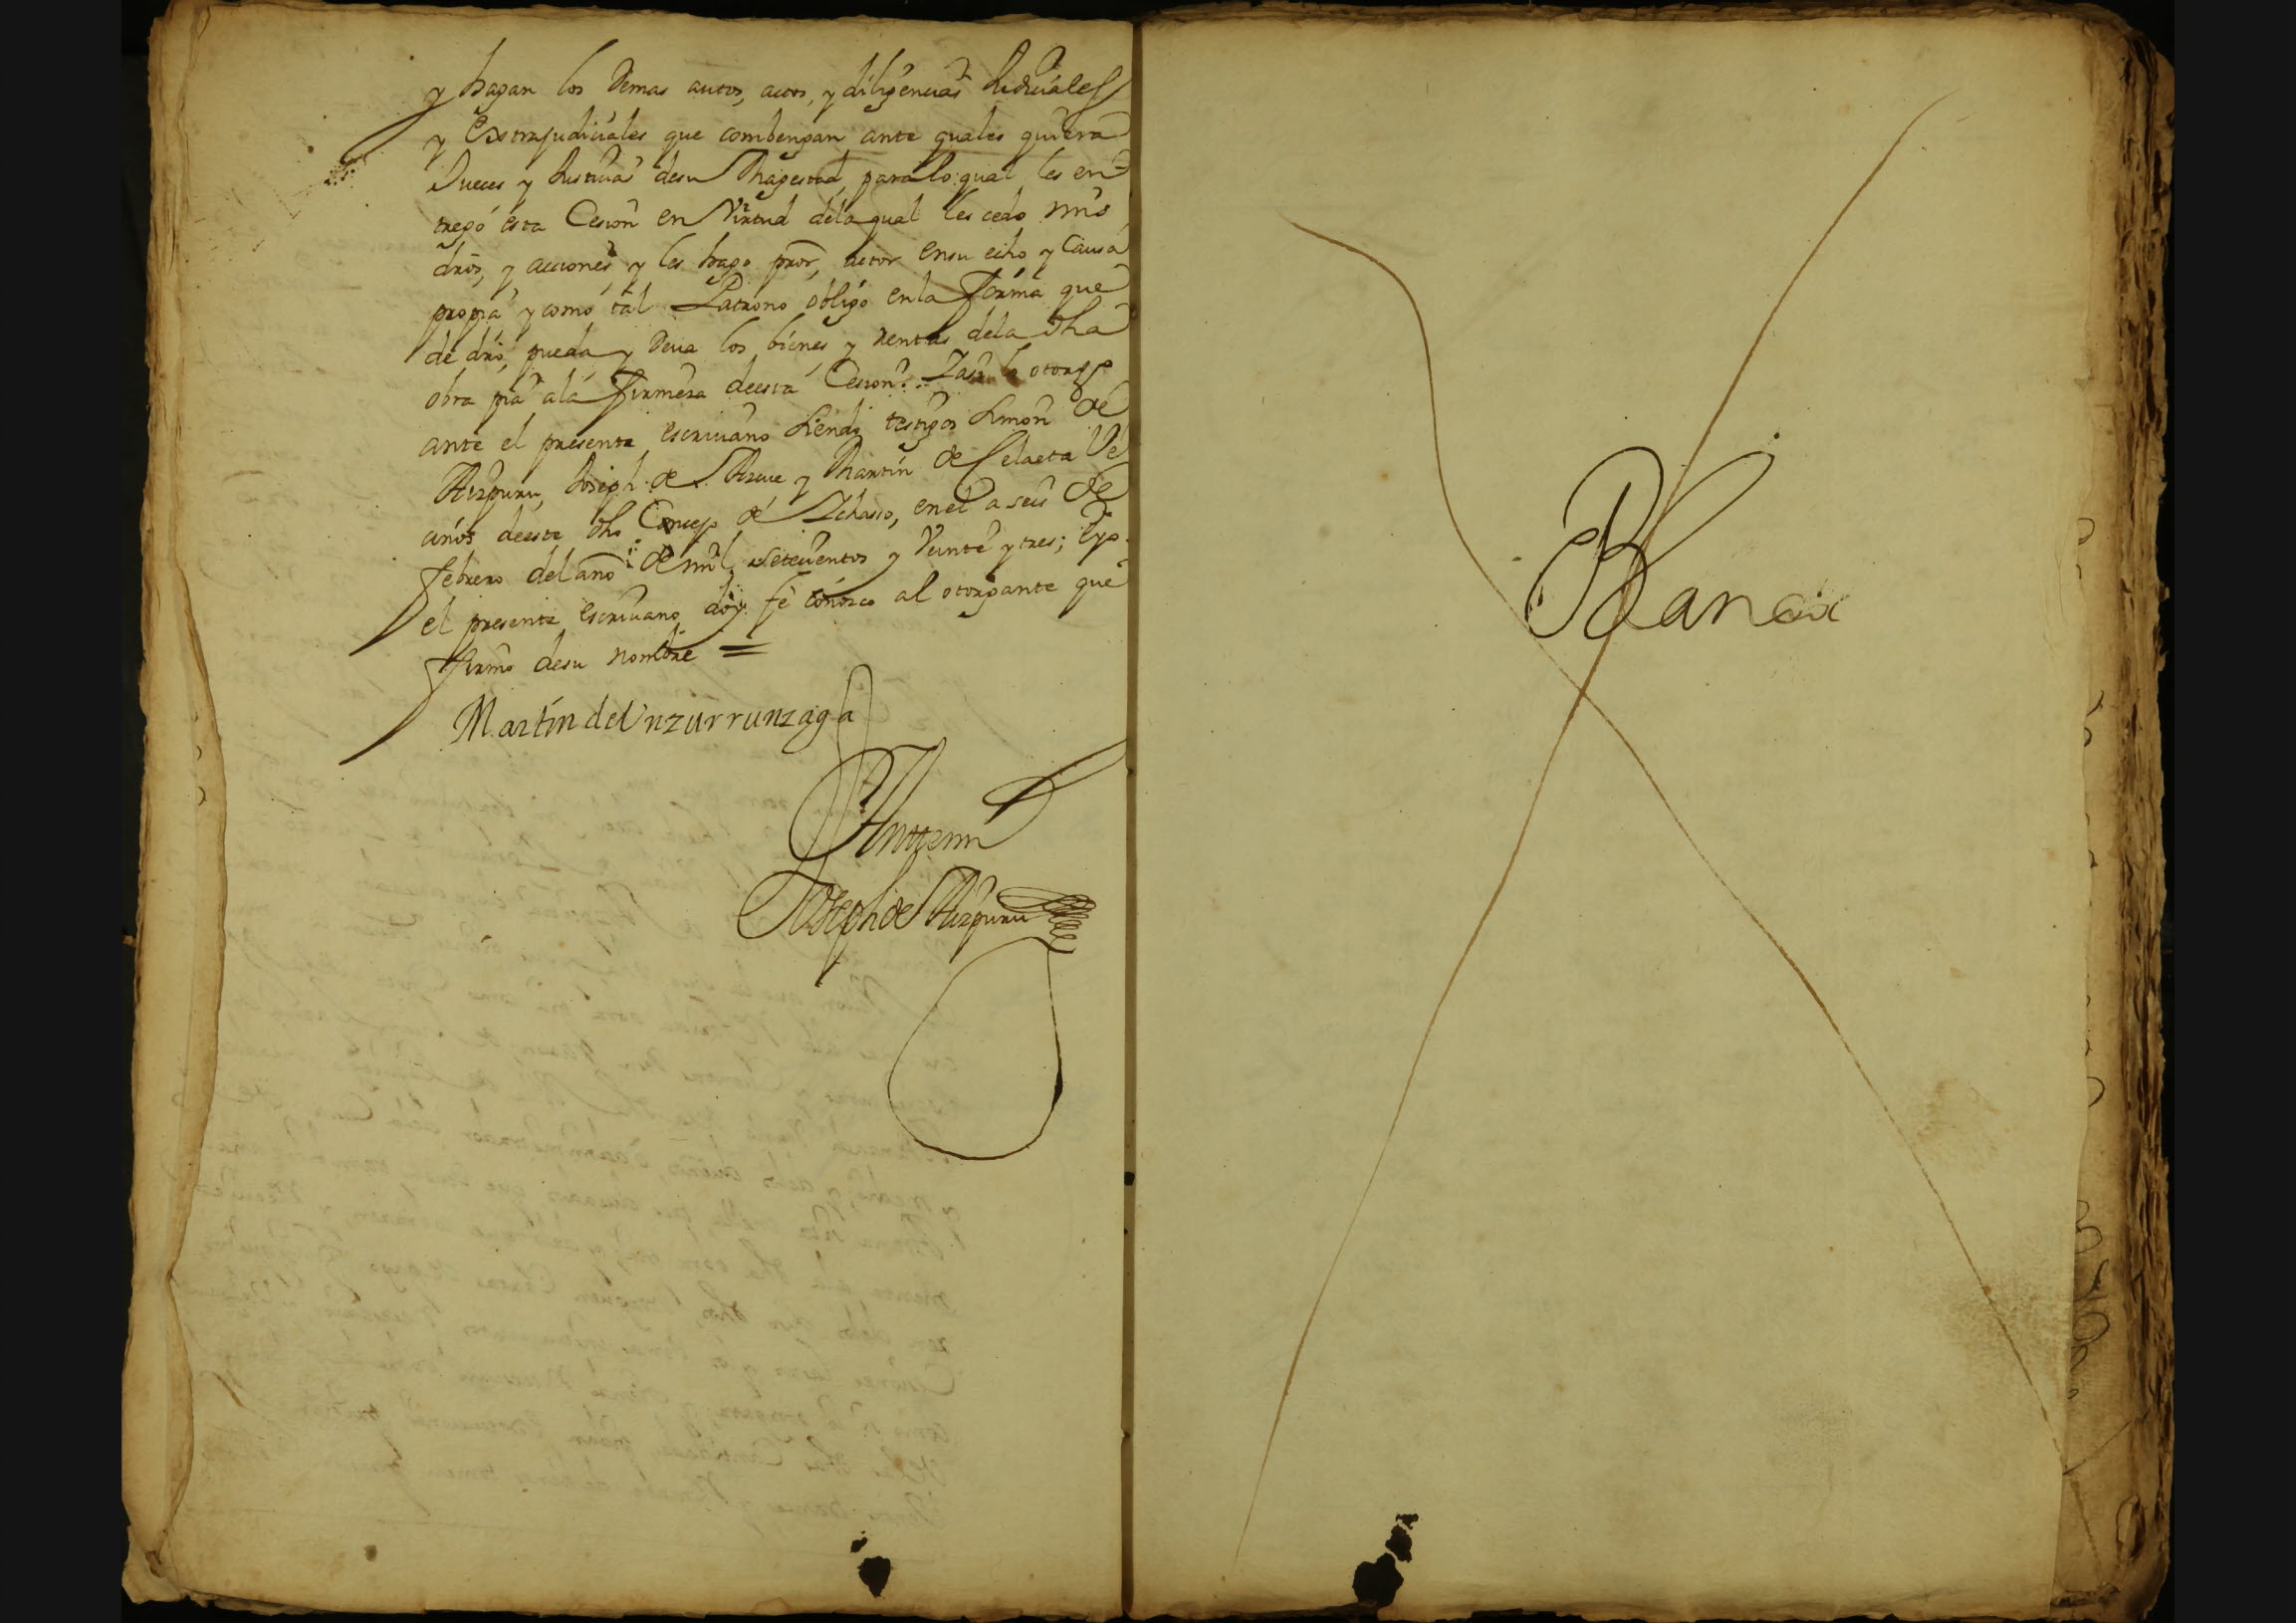 y hagan los demas autos, actos, y diligencias Judiciales
y Extrajudiciales que combengan ante quales quiera
Jueces y Justicias desu Magestad, paralo qual les en
tregó esta Cesion en Virtud dela qual les cedo mis
dros, y acciones y les hago pror, actor ensu echo y Causa
propia y como tal Patrono obligo enla forma que
de dro, pueda y deua los bienes y rentas dela dha
obra pia ala firmeza deesta Cesion. Yasi lo otorgo
ante el presente escriuano siendo testigos Simon de
Aizpuru, Joseph de y Martin de Celaeta Ve
cinos deeste dho Concejo de Ichasso, enel a seis de
febrero del año de mil setecientos y Veinte y tres; Eyo
el presente escriuano doy fe conozco al otorgante que
firmo desu nombre =
Martin de Unzurrunzaga
Anttemi
Joseph de Aizpuru
Blanca